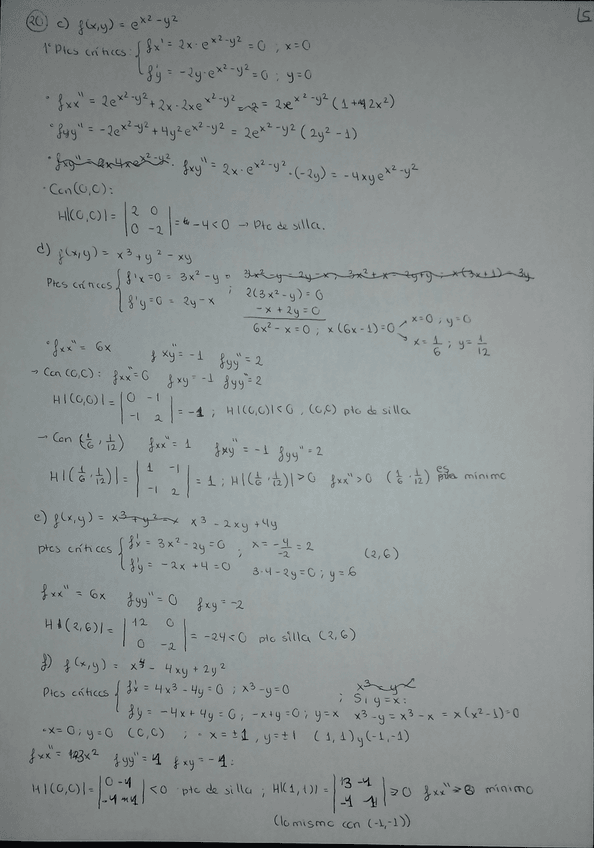 15
20 c) f(x,y) = e^(x²-y²)
1º Ptos críticos: { fx' = 2x·e^(x²-y²) = 0 ; x=0
fy' = -2y·e^(x²-y²) = 0 ; y=0
· fxx'' = 2e^(x²-y²) + 2x·2xe^(x²-y²) = 2e^(x²-y²) (1+2x²)
· fyy'' = -2e^(x²-y²) + 4y²e^(x²-y²) = 2e^(x²-y²) (2y²-1)
· fxy'' = 2x·e^(x²-y²)·(-2y) = -4xye^(x²-y²)
· Con (0,0):
H|(0,0)| = |2 0
0 -2| = -4<0 → Pto de silla.
d) f(x,y) = x³+y²-xy
Ptos críticos { f'x=0 = 3x²-y = 3x²-y = 2y-x; 3x²+x = 2y+y; x(3x+1) = 3y
f'y=0 = 2y-x ; 2(3x²-y)=0
-x+2y=0
6x²-x=0 ; x(6x-1)=0 x=0 ; y=0
x=1/6 ; y=1/12
· fxx''= 6x fxy''=-1 fyy''=2
→ Con (0,0): fxx''=0 fxy=-1 fyy''=2
H|(0,0)| = |0 -1
-1 2| = -1 ; H|(0,0)|<0. (0,0) pto de silla
→ Con (1/6, 1/12) fxx''=1 fxy''=-1 fyy''=2
H|(1/6, 1/12)| = |1 -1
-1 2| = 1 ; H|(1/6, 1/12)|>0 fxx''>0 (1/6, 1/12) es mínimo
e) f(x,y) = x³+y²-x x³-2xy+4y
ptos críticos { f'x = 3x²-2y=0 ; x = -4/-2 = 2 (2,6)
f'y = -2x+4=0 3·4-2y=0 ; y=6
fxx''= 6x fyy''=0 fxy=-2
H|(2,6)| = |12 0
0 -2| = -24<0 pto silla (2,6)
f) f(x,y) = x⁴-4xy+2y²
Ptos críticos { f'x = 4x³-4y=0 ; x³-y=0 x³-y²
f'y = -4x+4y=0 ; -x+y=0; y=x ; Si y=x: x³-y = x³-x = x(x²-1)=0
· x=0; y=0 (0,0) ; · x=±1, y=±1 (1,1) y (-1,-1)
fxx''= 12x² fyy''=4 fxy=-4:
H|(0,0)| = |0 -4
-4 4| <0 pto de silla ; H|(1,1)| = |13 -4
-4 4| >0 fxx''>0 mínimo
(lo mismo con (-1,-1))